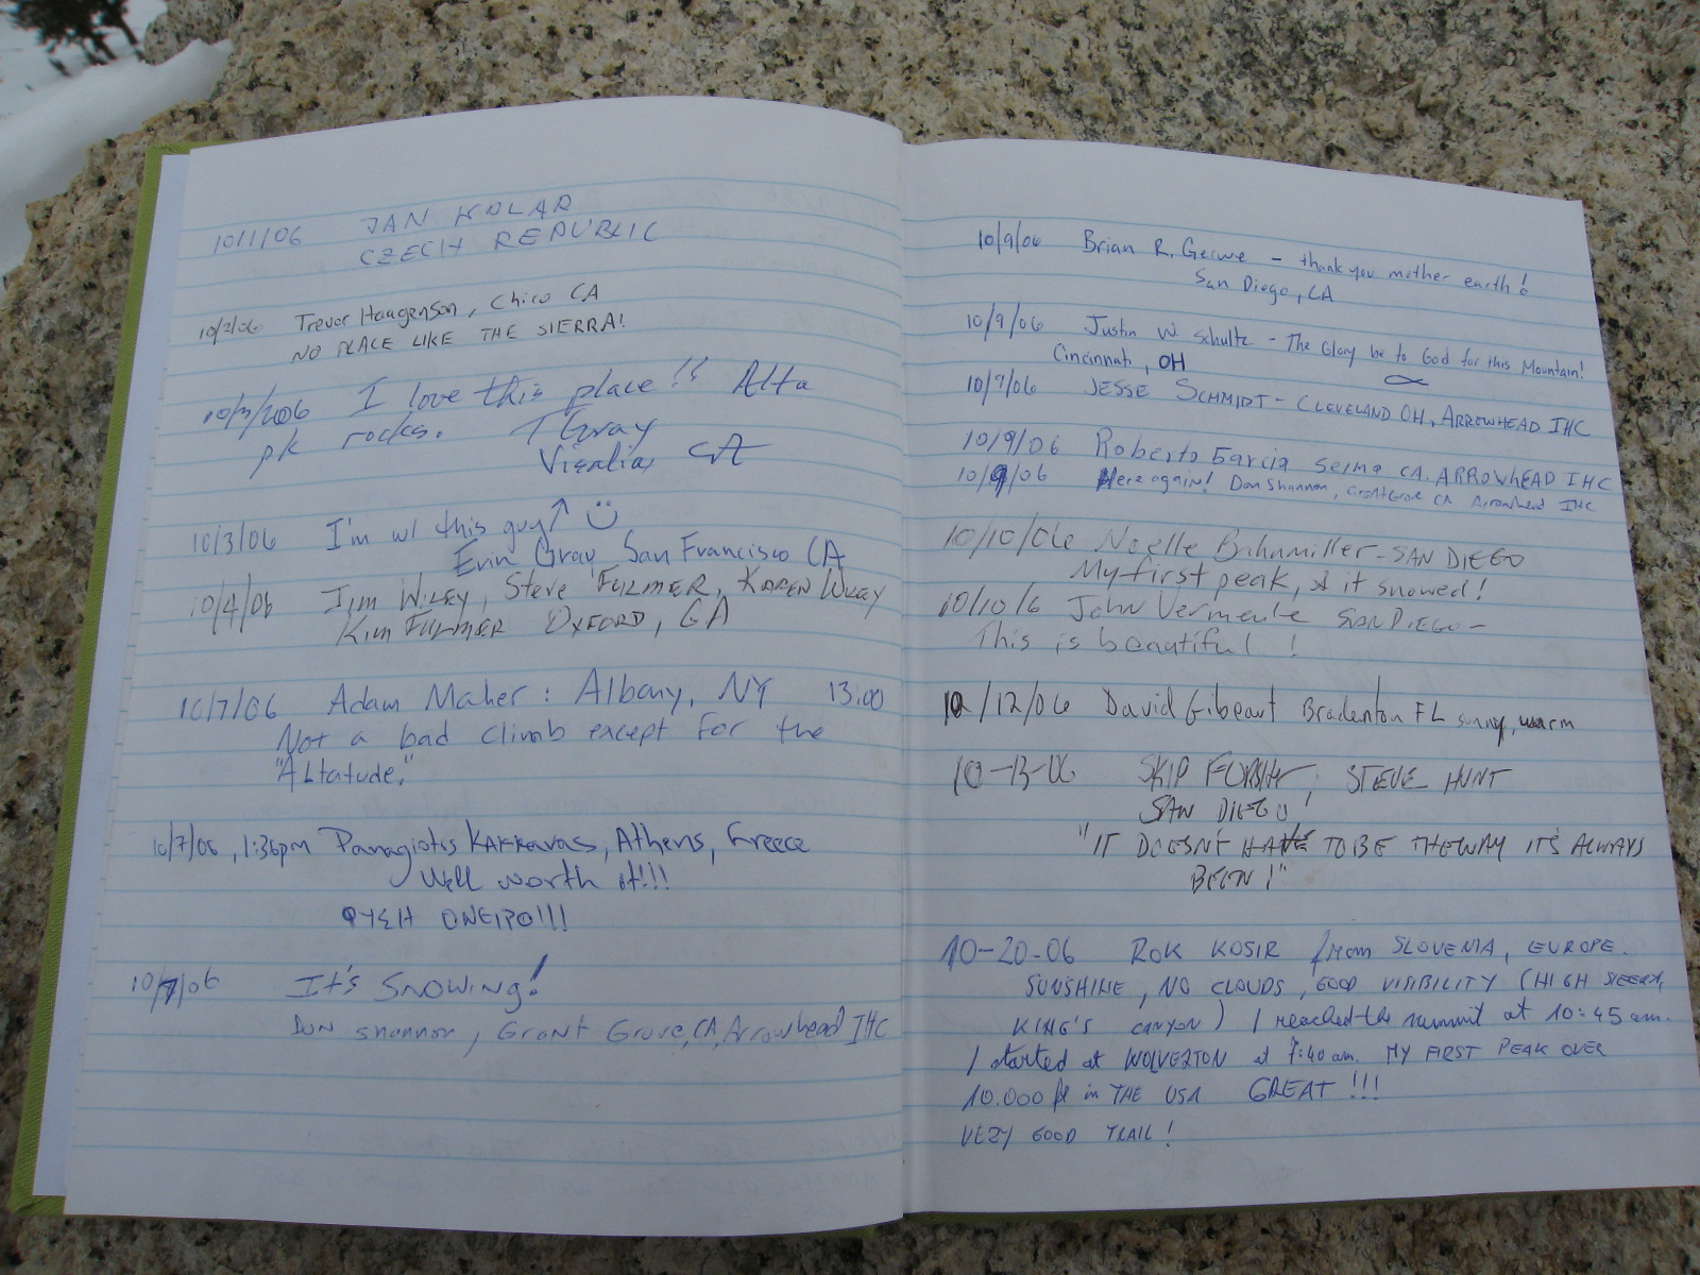 10/1/06 JAN KOLAR
CZECH REPUBLIC
10/2/06 Trevor Haugenson, Chico CA
NO PLACE LIKE THE SIERRA!
10/3/2006 I love this place!! Alta
pk rocks. TGray
Visalia, CA
10/3/06 I'm w/ this guy↑ ☺
Erin Gray, San Francisco CA
10/4/06 Jim Wiley, Steve FULMER, KAREN Wiley
Kim FULMER OXFORD, GA
10/7/06 Adam Maher: Albany, NY 13:00
Not a bad climb except for the
"Altatude."
10/7/06, 1:36pm Panagiotis Kakkavas, Athens, Greece
Well worth it!!!
ONEIPO!!!
10/7/06 It's Snowing!
Don Shannon, Grant Grove, CA, Arrowhead IHC
10/9/06 Brian R. Gerwe - thank you mother earth!
San Diego, CA
10/9/06 Justin W. Schultz - The Glory be to God for this Mountain!
Cincinnati, OH
10/9/06 JESSE SCHMIDT - CLEVELAND OH, ARROWHEAD IHC
10/9/06 Roberto Garcia Selma CA. ARROWHEAD IHC
10/9/06 Here again! Don Shannon, Grant Grove CA Arrowhead IHC
10/10/06 Noelle Bahnmiller - SAN DIEGO
My first peak, & it snowed!
10/10/6 John Vermeule SAN DIEGO -
This is beautiful!
10/12/06 David Gibeaut Bradenton FL sunny, warm
10-13-06 SKIP ; STEVE HUNT
SAN DIEGO!
"IT DOESN'T HAVE TO BE THE WAY IT'S ALWAYS
BEEN!"
10-20-06 ROK KOSIR from SLOVENIA, EUROPE.
SUNSHINE, NO CLOUDS, GOOD VISIBILITY (HIGH SIERRA,
KING'S canyon) I reached the summit at 10:45 am.
I started at WOLVERTON at 7:40 am. MY FIRST PEAK OVER
10.000 ft in THE USA GREAT!!!
VERY GOOD TRAIL!